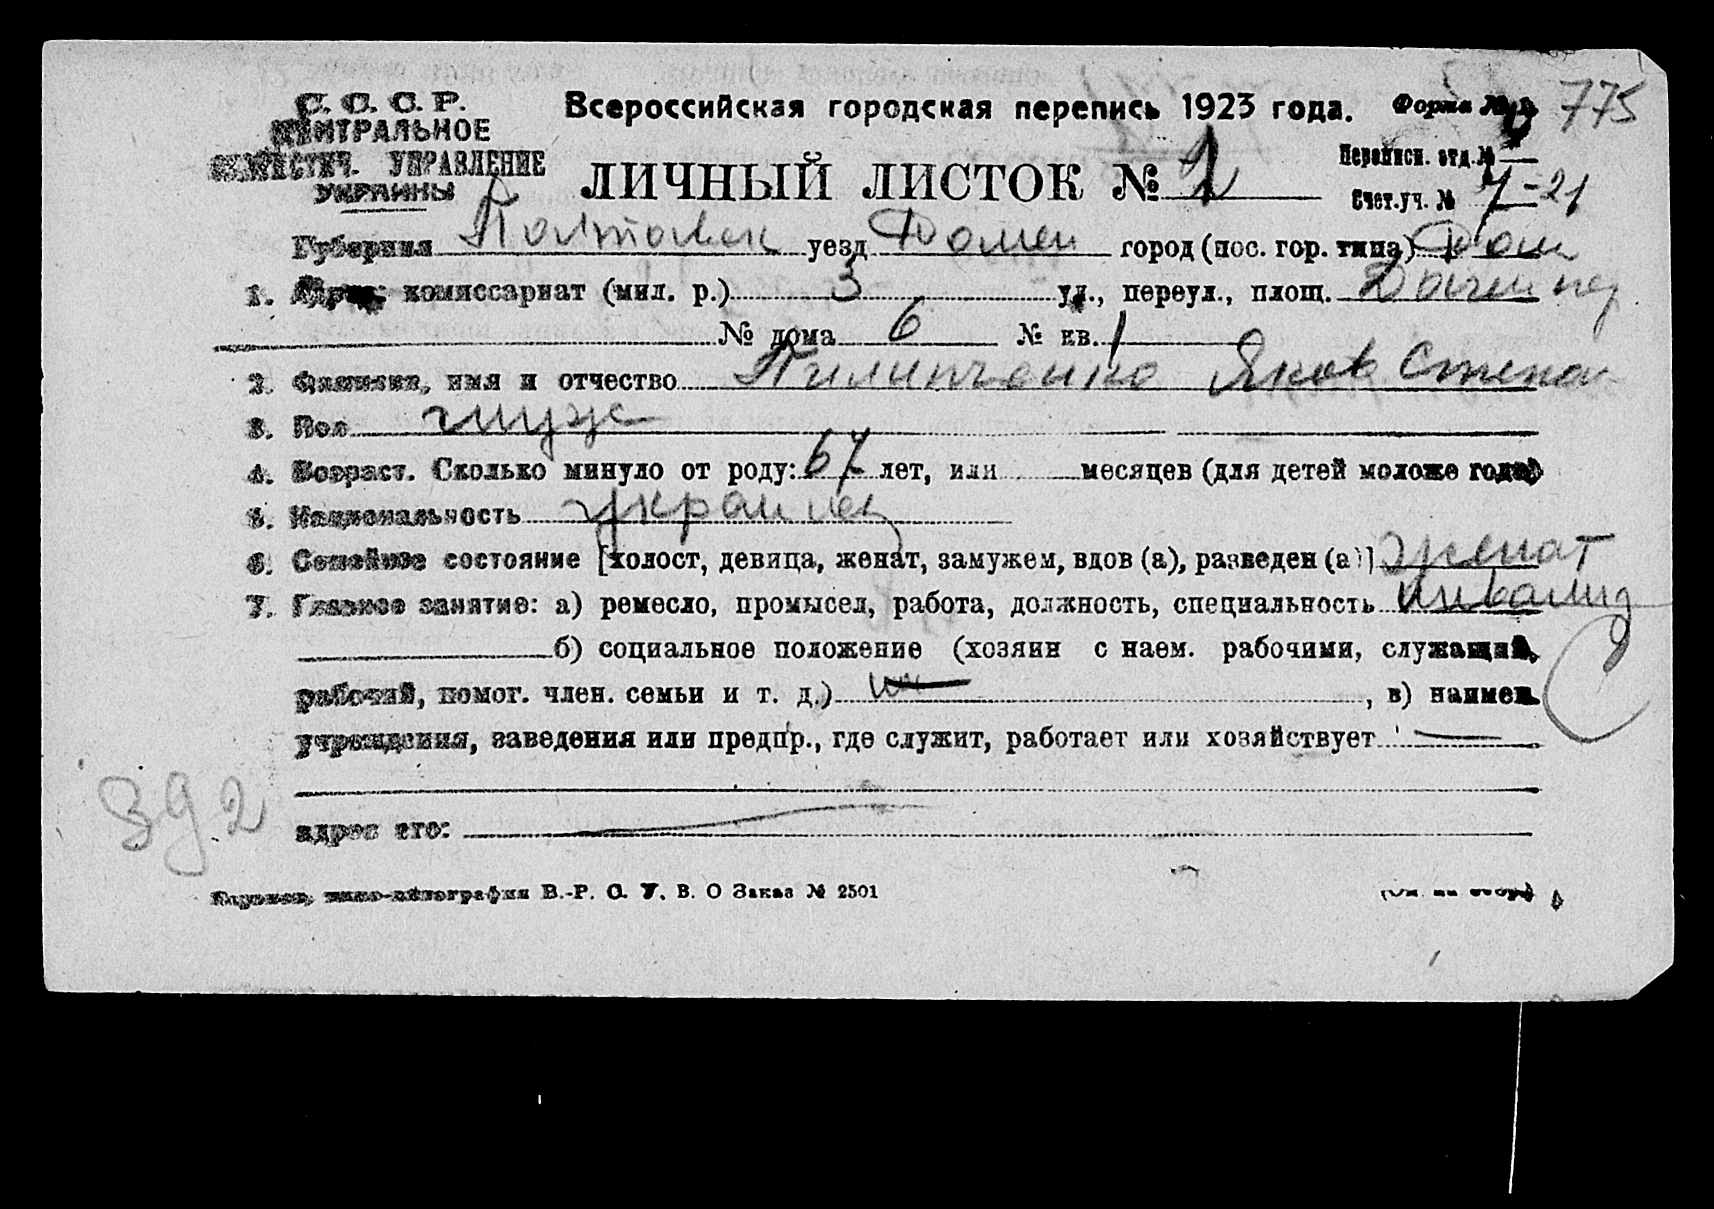 С. С. С. Р.
ЦЕНТРАЛЬНОЕ
СТАТИСТИЧ. УПРАВЛЕНИЕ
УКРАИНЫ
Всероссийская городская перепись 1923 года. Форма № 775
ЛИЧНЫЙ ЛИСТОК №
Переписн. отд. №
Счет. уч. № 7-21
Губерния Полтавск уезд Ромен город (пос. гор. типа) Ром
1. Адрес: комиссариат (мил. р.) 3 ул., переул., площ. пер
№ дома 6 № кв. 1
2. Фамилия, имя и отчество Пилипченко Яков Степан
3. Пол муж
4. Возраст. Сколько минуло от роду: 67 лет, или месяцев (для детей моложе года)
5. Национальность украинец
6. Семейное состояние [холост, девица, женат, замужем, вдов (а), разведен (а)] женат
7. Главное занятие: а) ремесло, промысел, работа, должность, специальность инвалид
б) социальное положение (хозяин с наем. рабочими, служащий,
рабочий, помог. член. семьи и т. д.) , в) наимен.
учреждения, заведения или предпр., где служит, работает или хозяйствует
392
адрес его:
Харьков, типо-литография В.-Р. С. У. В. О Заказ № 2501
(См. на обор.)